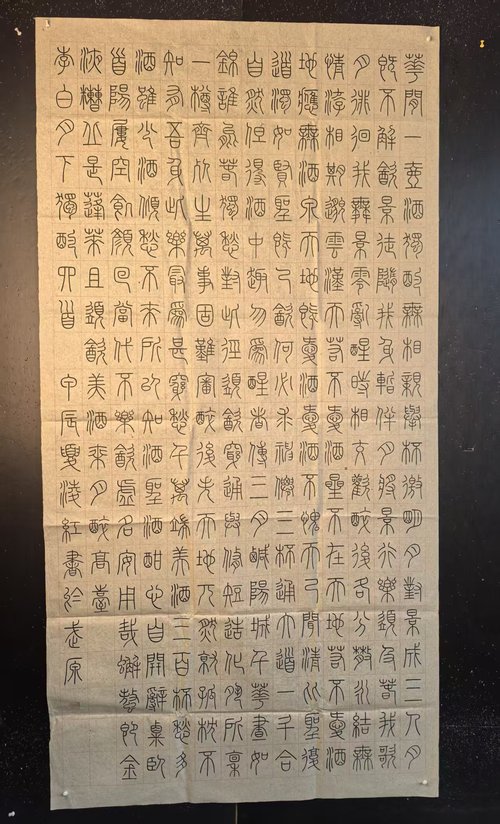 華間一壺酒獨酌無相親舉杯邀明月對景成三人月
既不解飲景徒隨我身暫伴月將景行樂須及春我歌
月徘徊我舞景零亂醒時相交歡醉後各分散永結無
情游相期邈雲漢天若不愛酒星不在天地若不愛酒
地應無酒泉天地既愛酒愛酒不愧天已聞清比聖復
道濁如賢聖既已飲何必求神仙三杯通大道一斗合
自然但得酒中趣勿為醒者傳三月咸陽城千華晝如
錦誰能春獨愁對此徑須飲窮通與修短造化夙所稟
一樽齊死生萬事固難審醉後失天地兀然就孤枕不
知有吾身此樂最為甚窮愁千萬端美酒三百杯愁多
酒雖少酒傾愁不來所以知酒聖酒酣心自開辭粟臥
首陽屢空飢顏回當代不樂飲虛名安用哉蟹螯即金
液糟丘是蓬萊且須飲美酒乘月醉高臺
李白月下獨酌四首 甲辰夏淩紅書於原